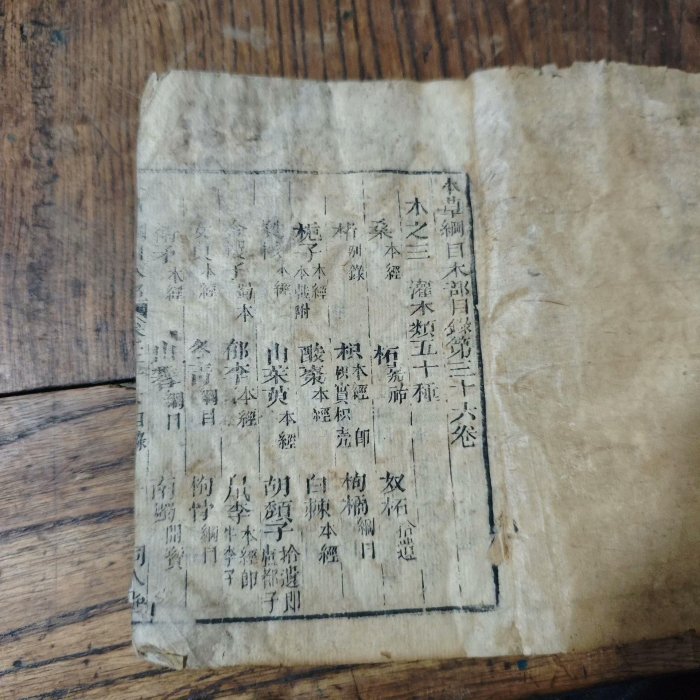 本草綱目木部目錄第三十六卷
木之三 灌木類五十種
桑本經 柘嘉祐 奴柘拾遺
楮別錄 枳本經即枳實枳殼 枸橘綱目
梔子本經木戟附 酸棗本經 白棘本經
蕤核本經 山茱萸本經 胡頹子拾遺即盧都子
金櫻子蜀本 郁李本經 鼠李本經即牛李子
女貞本經 冬青綱目 枸骨綱目
衛矛本經 山礬綱目 南燭開寶
目錄